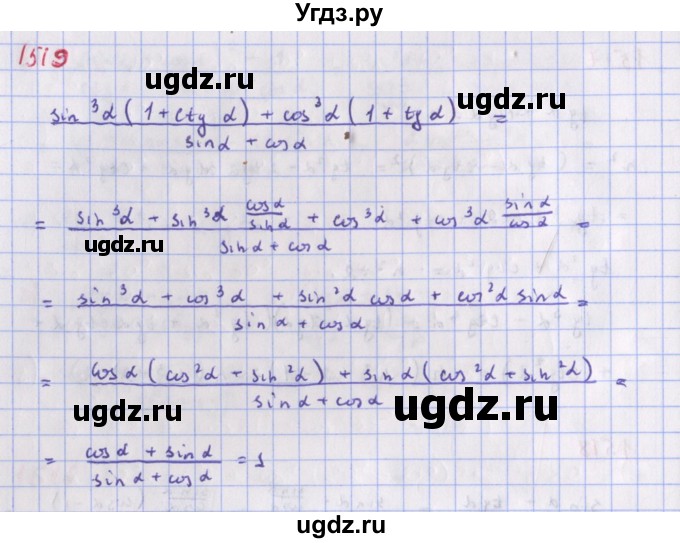 Угдз.ру
1519
ugdz.ru
ugdz.ru
sin³α(1 + ctg α) + cos³α(1 + tg α) / sinα + cosα =
= sin³α + sin³α cosα/sinα + cos³α + cos³α sinα/cosα / sinα + cosα =
ugdz.ru
ugdz.ru
= sin³α + cos³α + sin²α cosα + cos²α sinα / sinα + cosα =
= cosα(cos²α + sin²α) + sinα(cos²α + sin²α) / sinα + cosα =
ugdz.ru
ugdz.ru
= cosα + sinα / sinα + cosα = 1
ugdz.ru